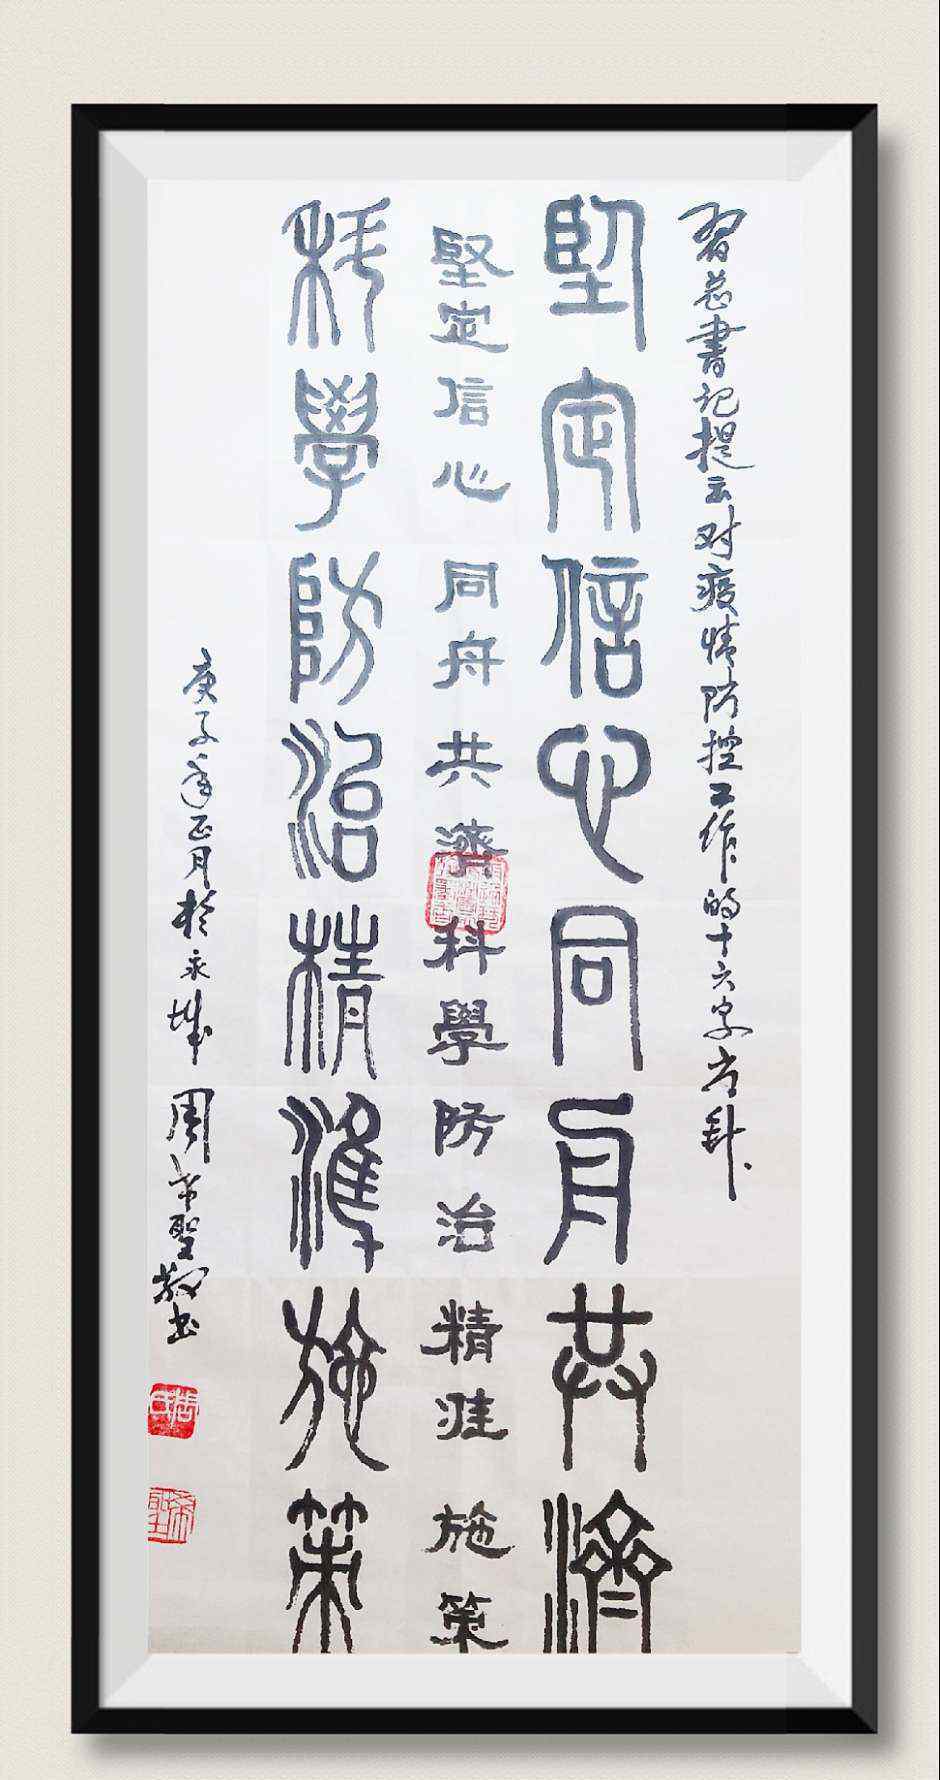 習总書记提出对疫情防控工作的十六字方针
堅定信心同舟共濟
堅定信心同舟共濟科學防治精准施策
科學防治精準施策
庚子年正月於永城周希聖敬书
周氏
希聖